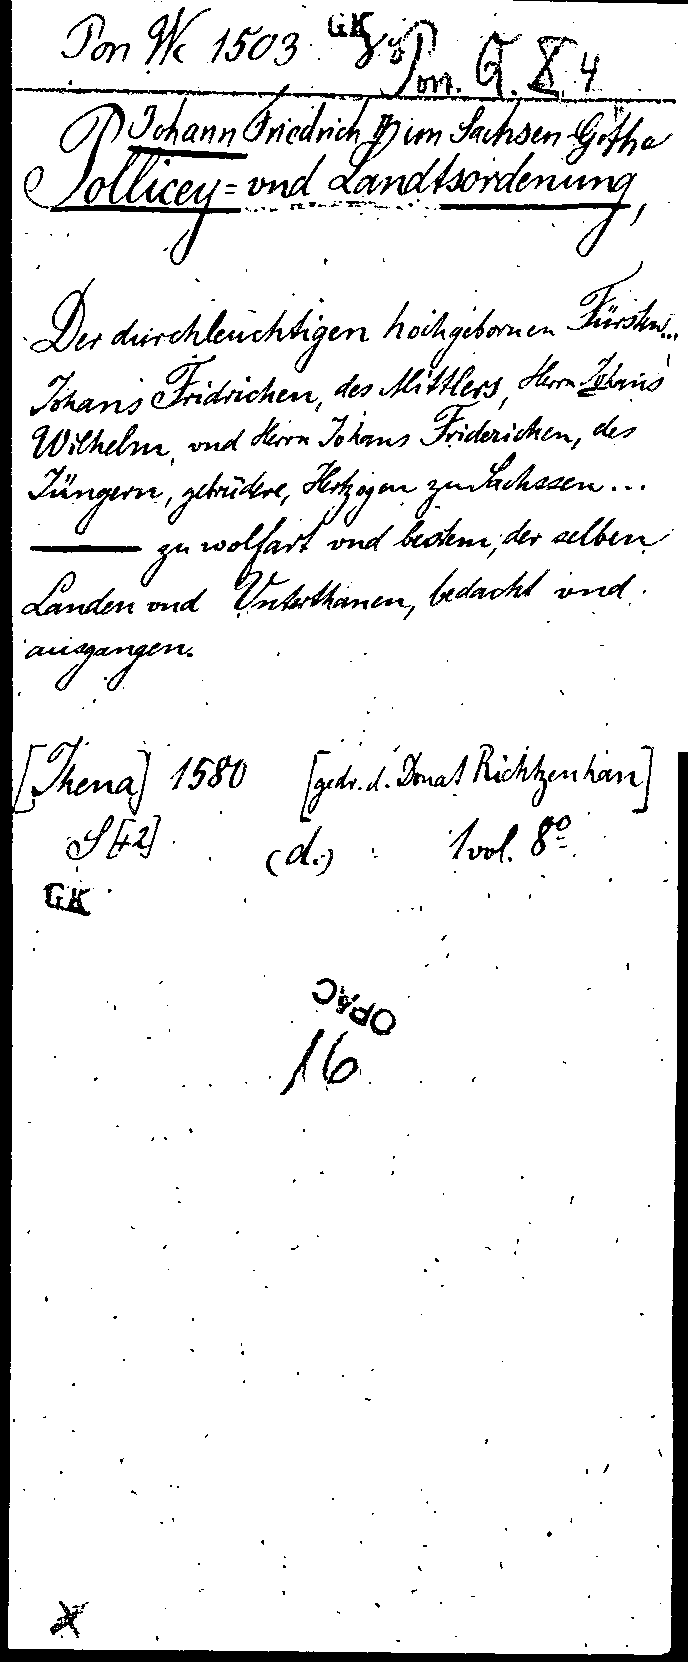 Pon Wc 1503 GK 8° Pon. Q. X 4
Johann Friedrich II) im Sachsen-Gotha
Pollicey= vnd Landtsordenung,
Der durchleuchtigen hochgebornen Fürsten...
Johans Fridrichen, des Mittlers, Herrn Johans
Wilhelm, vnd Herrn Johans Friderichen, des
Jüngern, gebrüdere, Hertzogen zu Sachssen...
——— zu wolfart vnd bestem, der selben
Landen vnd Vnterthanen, bedacht vnd
ausgangen.
[Jhena] 1580 [gedr. d. Donat Richtzenhan]
S [42] (d.) 1 vol. 8°
GK
OPAC
16